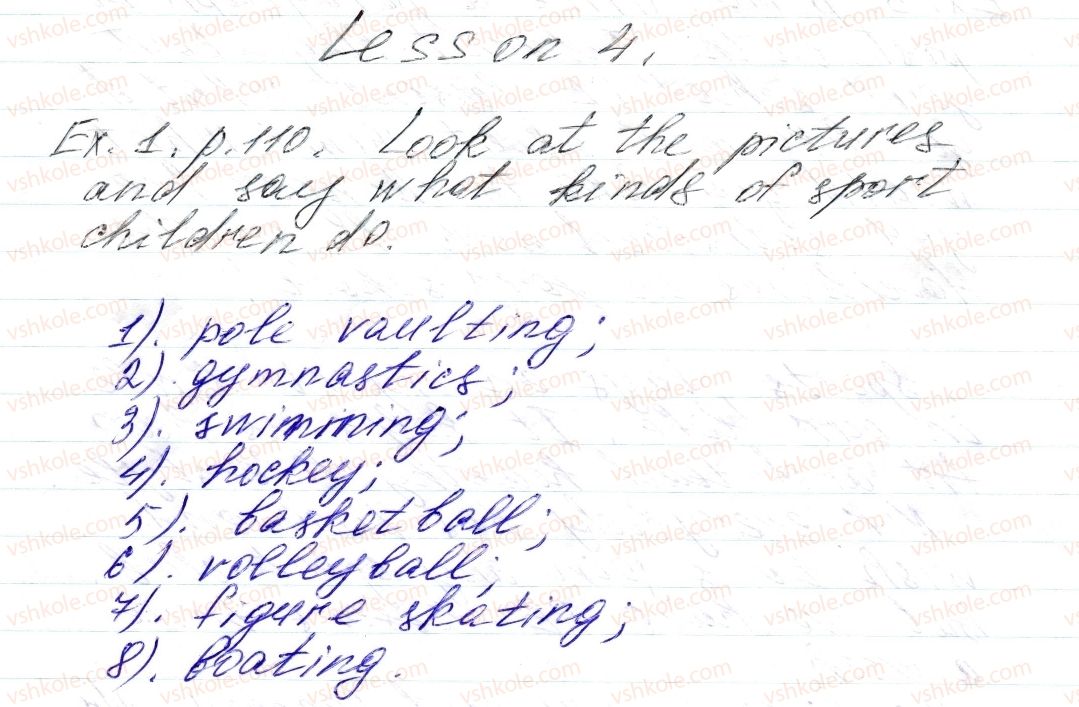 Lesson 4.
Ex. 1. p. 110. Look at the pictures
and say what kinds of sport
children do.
1). pole vaulting;
2). gymnastics;
3). swimming;
4). hockey;
5). basketball;
6). volleyball;
7). figure skating;
8). boating.
vshkole.com